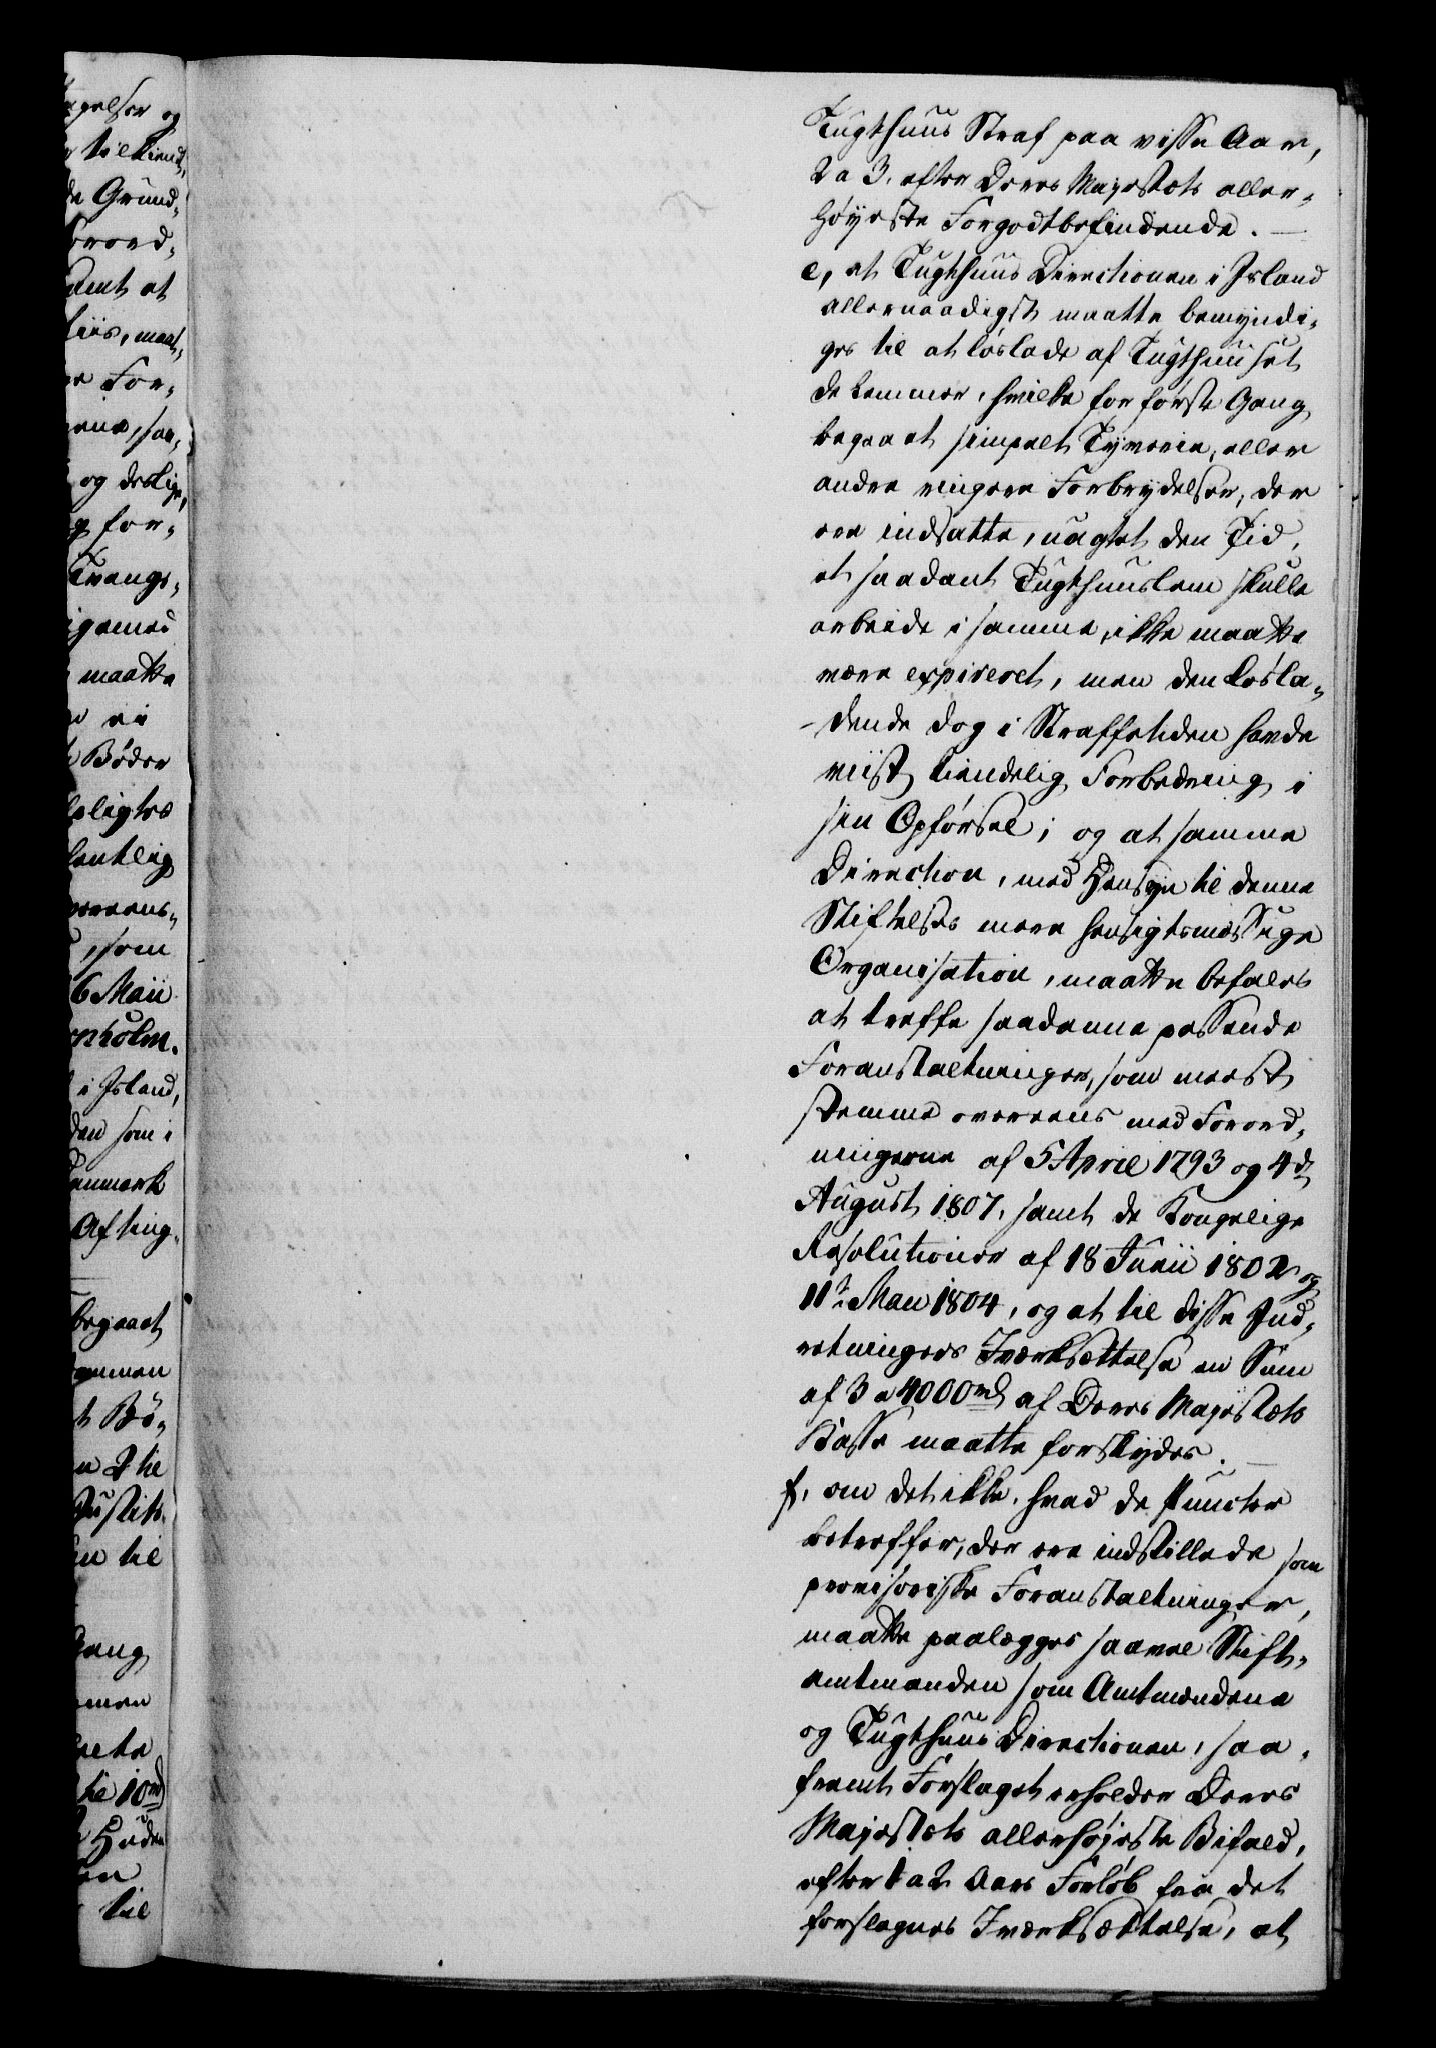 Tugthuus Straf paa visse Aar,
2 a 3. efter Deres Majestæts aller-
høyeste Forgodtbefindende. —
e, at Tugthuus Directionen i Island
allernaadigst maatte bemyndi-
ges til at løslade af Tugthuuset
de Lemmer, hvilke for første Gang
begaaet simpelt Tyverie, eller
andre ringere Forbrydelser, der
ere indsatte, uagtet den Tid,
et saadant Tugthuuslem skulle
arbeide i samme, ikke maatte
være expireret, men den Løsla-
dende dog i Straffetiden havde
viist kiendelig Forbedring i
sin Opførsel; og at samme
Direction, med Hensyn til denne
Stiftelses mere hensigtsmæssige
Organisation, maatte befales
at træffe saadanne passende
Foranstaltninger, som meest
stemme overeens med Forord-
ningerne af 5 April 1793 og 4de
August 1807, samt de Kongelige
Resolutioner af 18 Junii 1802 og
11te Mai 1804, og at til disse Ind-
retningers Iværksættelse en Sum
af 3 a 4000 rd af Deres Majestæts
Kasse maatte forskydes. —
f, om det ikke, hvad de Puncter
betreffer, der ere indstillede som
provisoriske Foranstaltninger,
maatte paalægges saavel Stift-
amtmanden som Amtmændene
og Tugthuus Directionen, saa-
fremt Forslaget erholder Deres
Majestæts allerhøjeste Bifald,
efter 1 a 2 Aars Forløb fra det
forslagnes Iværksættelse, at